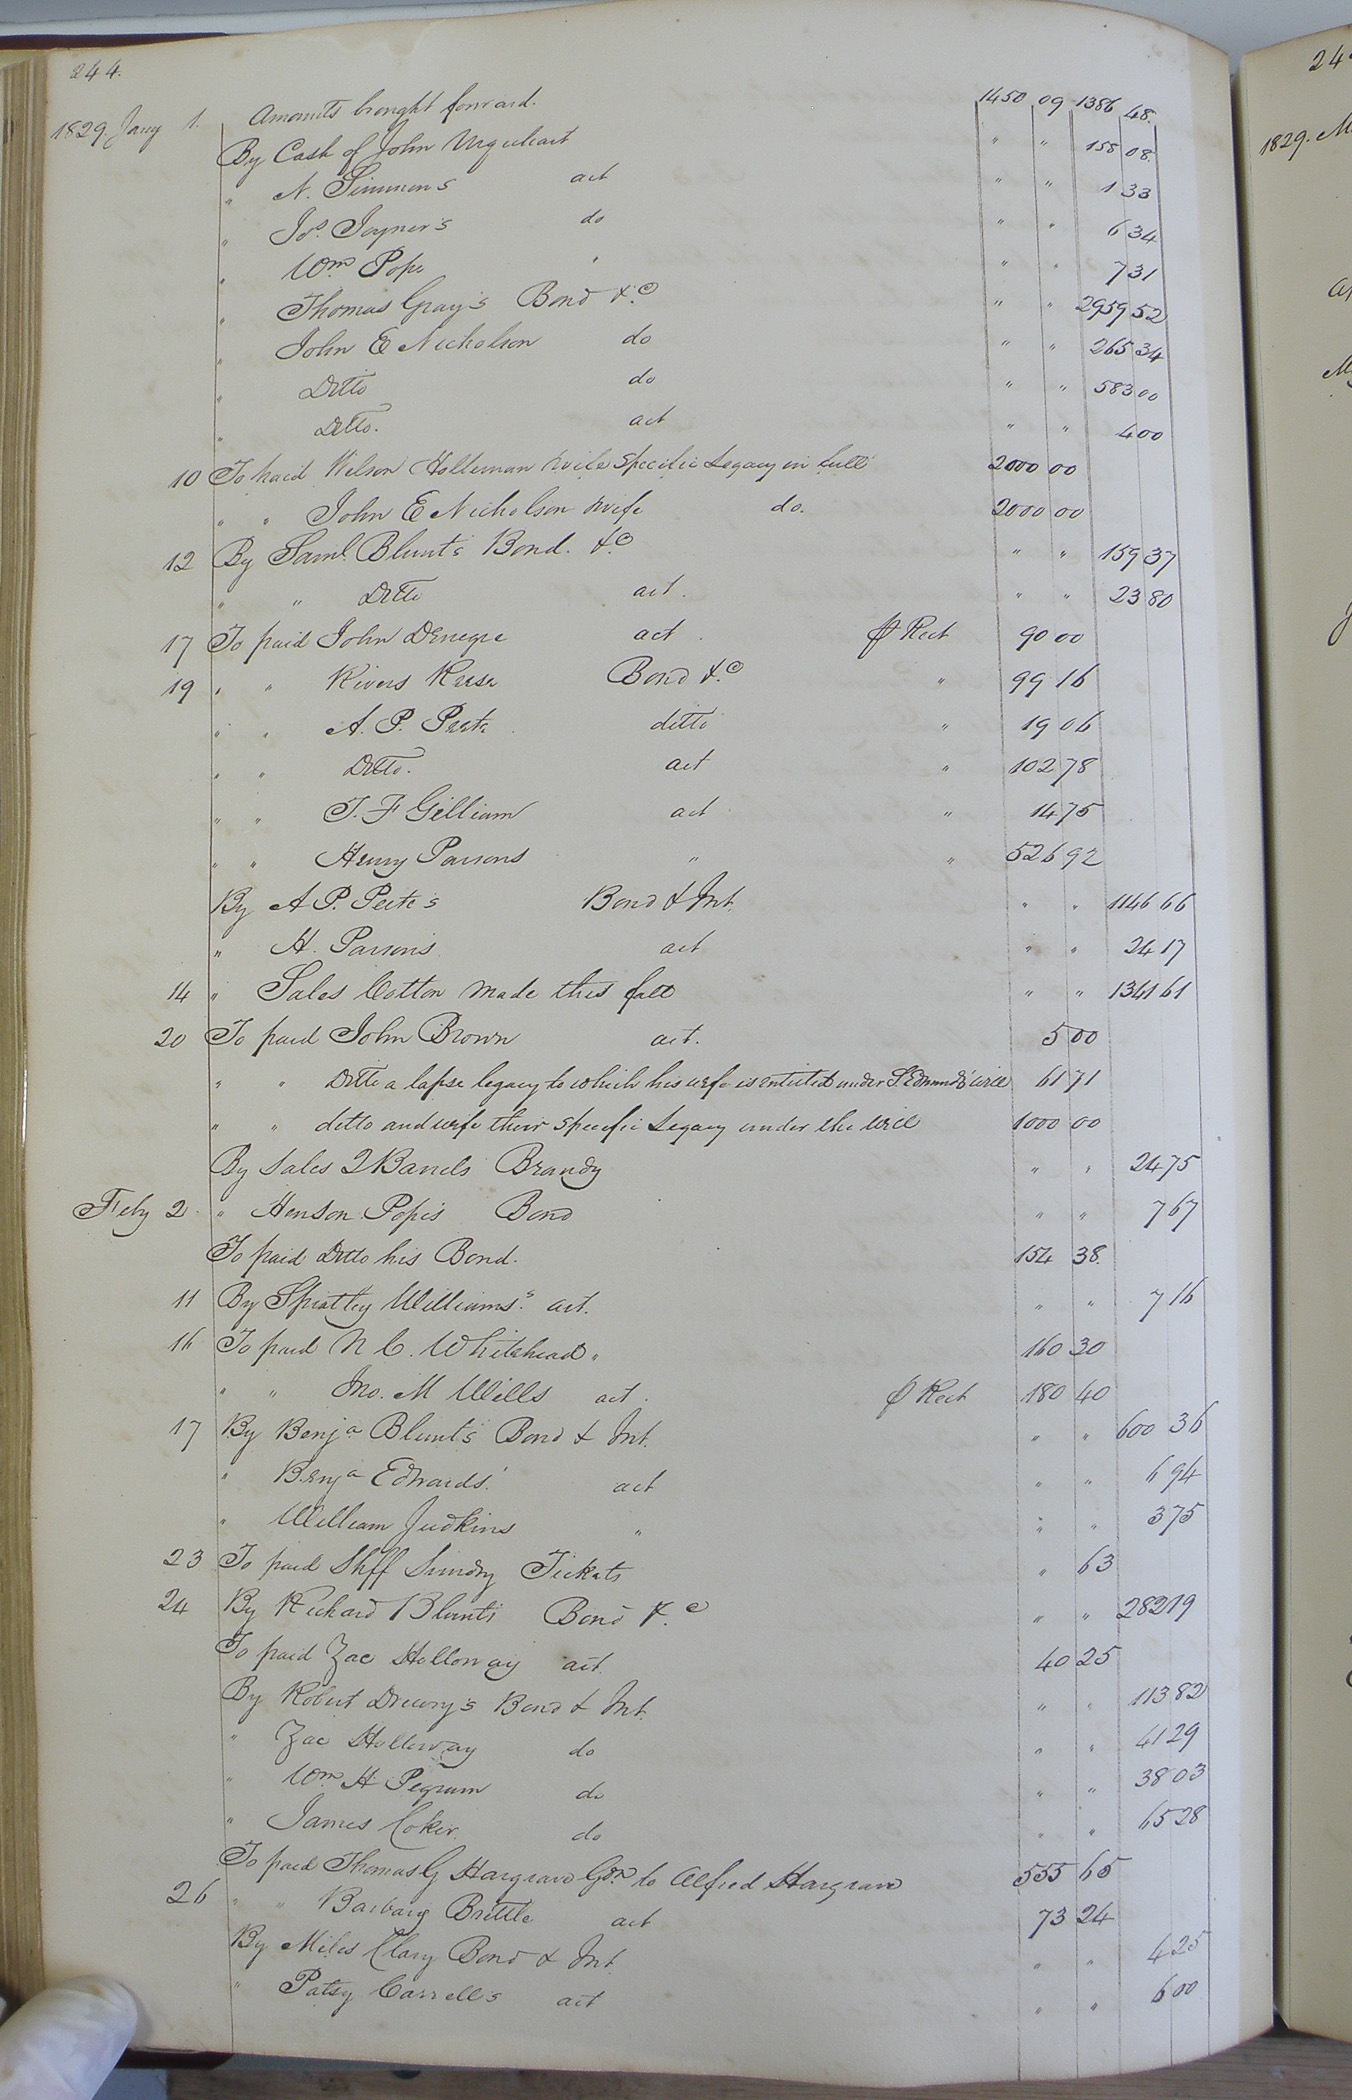 244.
Amounts brought forward. 1450 09 1386 48.
1829 Jany 1. By Cash of John Urquhart " " 158 08.
" N. Simmons act " " 1 33
" Jos. Joyner's do " " 6 34
" Wm Pope " " " 7 31
" Thomas Gray's Bond &c " " 2959 52
" John E Nicholson do " " 265 34
" Ditto do " " 583 00
" Ditto. act " " 4 00
10 To paid Wilson Holleman wife specific Legacy in full 2000 00
" " John E Nicholson wife do. 2000 00
12 By Saml. Blunt's Bond. &c " " 159 37
" " Ditto act. " " 23 80
17 To paid John Denegre act. ⅌ Rect 90 00
19 " " Rivers Reese Bond &c " 99 16
" " A. P. Peete ditto " 19 06
" " Ditto. act " 102 78
" " T. F Gilliam act " 14 75
" " Henry Parsons " " 526 92
By A P. Peete's Bond & Int. " " 1146 66
" H. Parsons act " " 24 17
14 " Sales Cotton made this fall " " 1341 61
20 To paid John Brown act. 5 00
" " Ditto a lapse legacy to which his wife is entitled under S Edmunds' will 61 71
" " ditto and wife their specific Legacy under the will 1000 00
By Sales 2 Barrels Brandy " " 24 75
Feby 2 " Henson Pope's Bond " " 7 67
To paid Ditto his Bond. 154 38.
11 By Spratley Williams' act. " " 7 16
16 To paid N C. Whitehead " 160 30
" " Jno. M Wills act. ⅌ Rect 180 40
17 By Benja Blunt's Bond & Int. " " 600 36
" Benja Edwards' act " " 6 94
" William Judkins " " " 3 75
23 To paid Shff Sundry Tickets " 63
24 By Richard Blunts Bond &c " " 282 19
To paid Zac Holloway act. 40 25
By Robert Drewry's Bond & Int. " " 113 82
" Zac Holloway do " " 41 29
" Wm H Pegram do " " 38 03
" James Coker. do " " 65 28
To paid Thomas G Hargrave Gdn to Alfred Hargrave 555 65
26 " " Barbary Brittle act 73 24
By Miles Clary Bond & Int. " " 4 25
" Patsy Carrell's act " " 6 00
24
1829. M